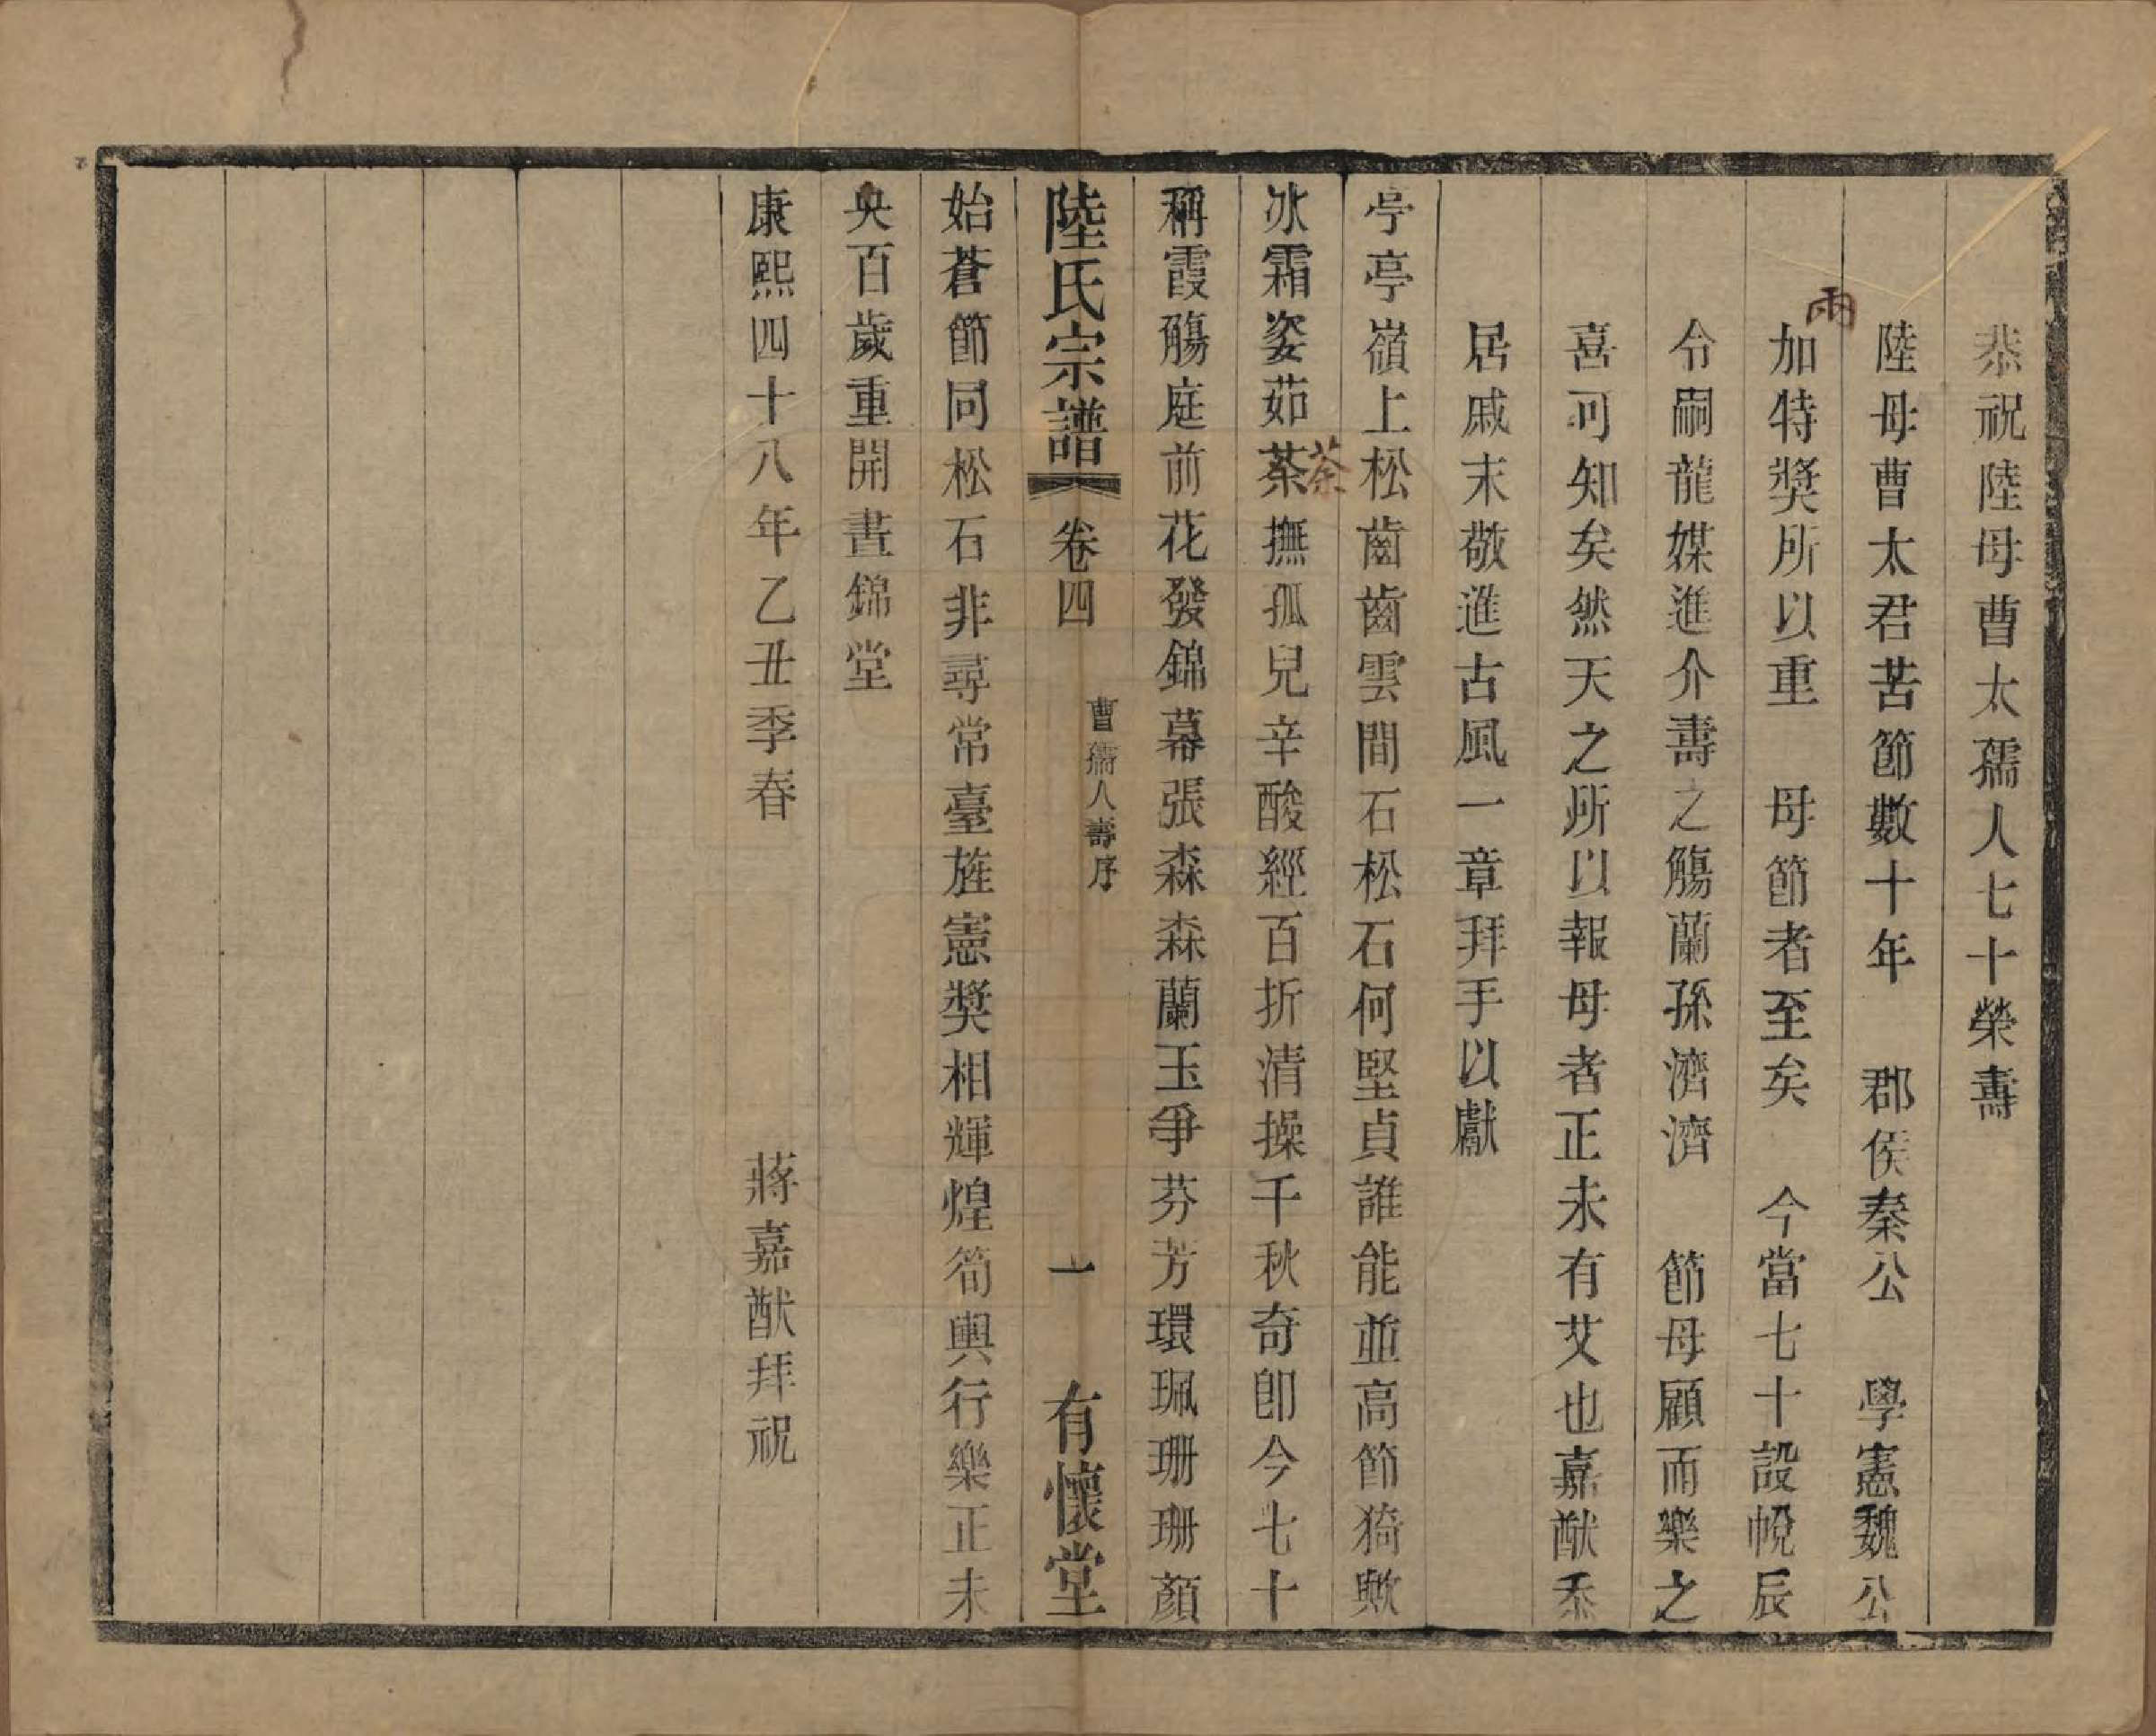 恭祝陸母曹太孺人七十榮壽
陸母曹太君苦節數十年　郡侯秦公　學憲魏公
兩
加特奬所以重　母節者至矣　今當七十設帨辰
令嗣龍媒進介壽之觴蘭孫濟濟　節母顧而樂之
喜可知矣然天之所以報母者正未有艾也嘉猷忝
居戚末敬進古風一章拜手以獻
亭亭嶺上松齒齒雲間石松石何堅貞誰能並高節猗歟
荼
冰霜姿茹茶撫孤兒辛酸經百折清操千秋奇卽今七十
稱霞觴庭前花發錦幕張森森蘭玉爭芬芳環珮珊珊顏
陸氏宗譜　卷四　曹孺人壽序　一　有懷堂
始蒼節同松石非尋常臺旌憲奬相輝煌筍輿行樂正未
央百歲重開晝錦堂
康熙四十八年乙丑季春　蔣嘉猷拜祝